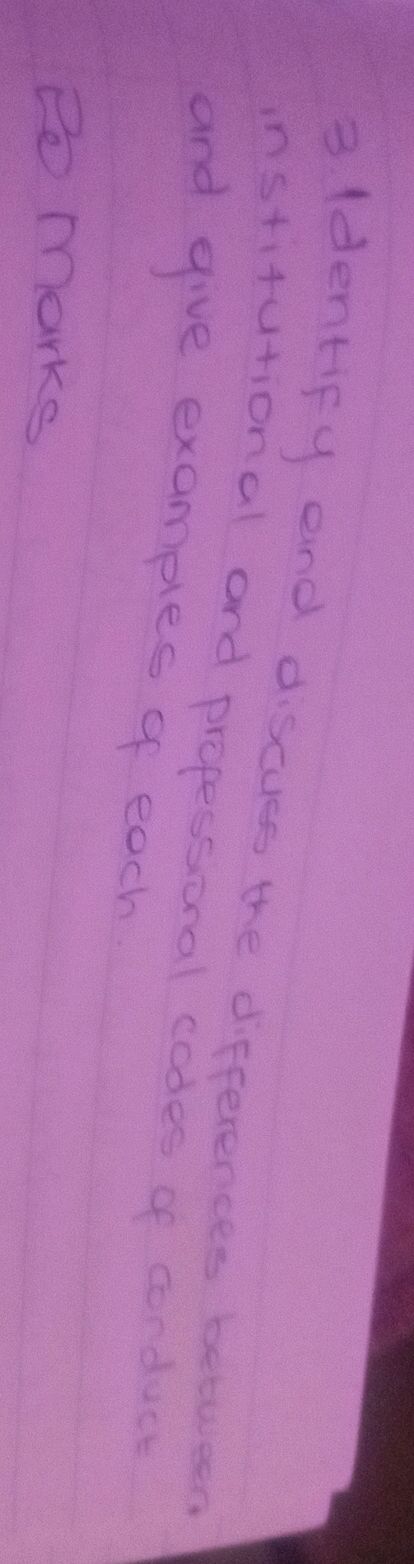 3. Identify and discuss the differences between
institutional and professional codes of conduct
and give examples of each.
20 Marks